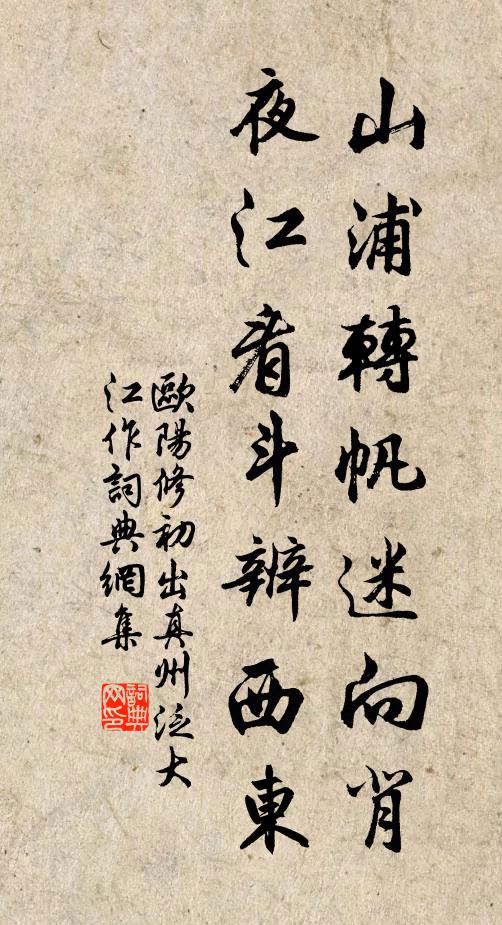 山浦轉帆迷向背
夜江看斗辨西東
歐陽修初出真州泛大
江作詞典網集
詞典
网印